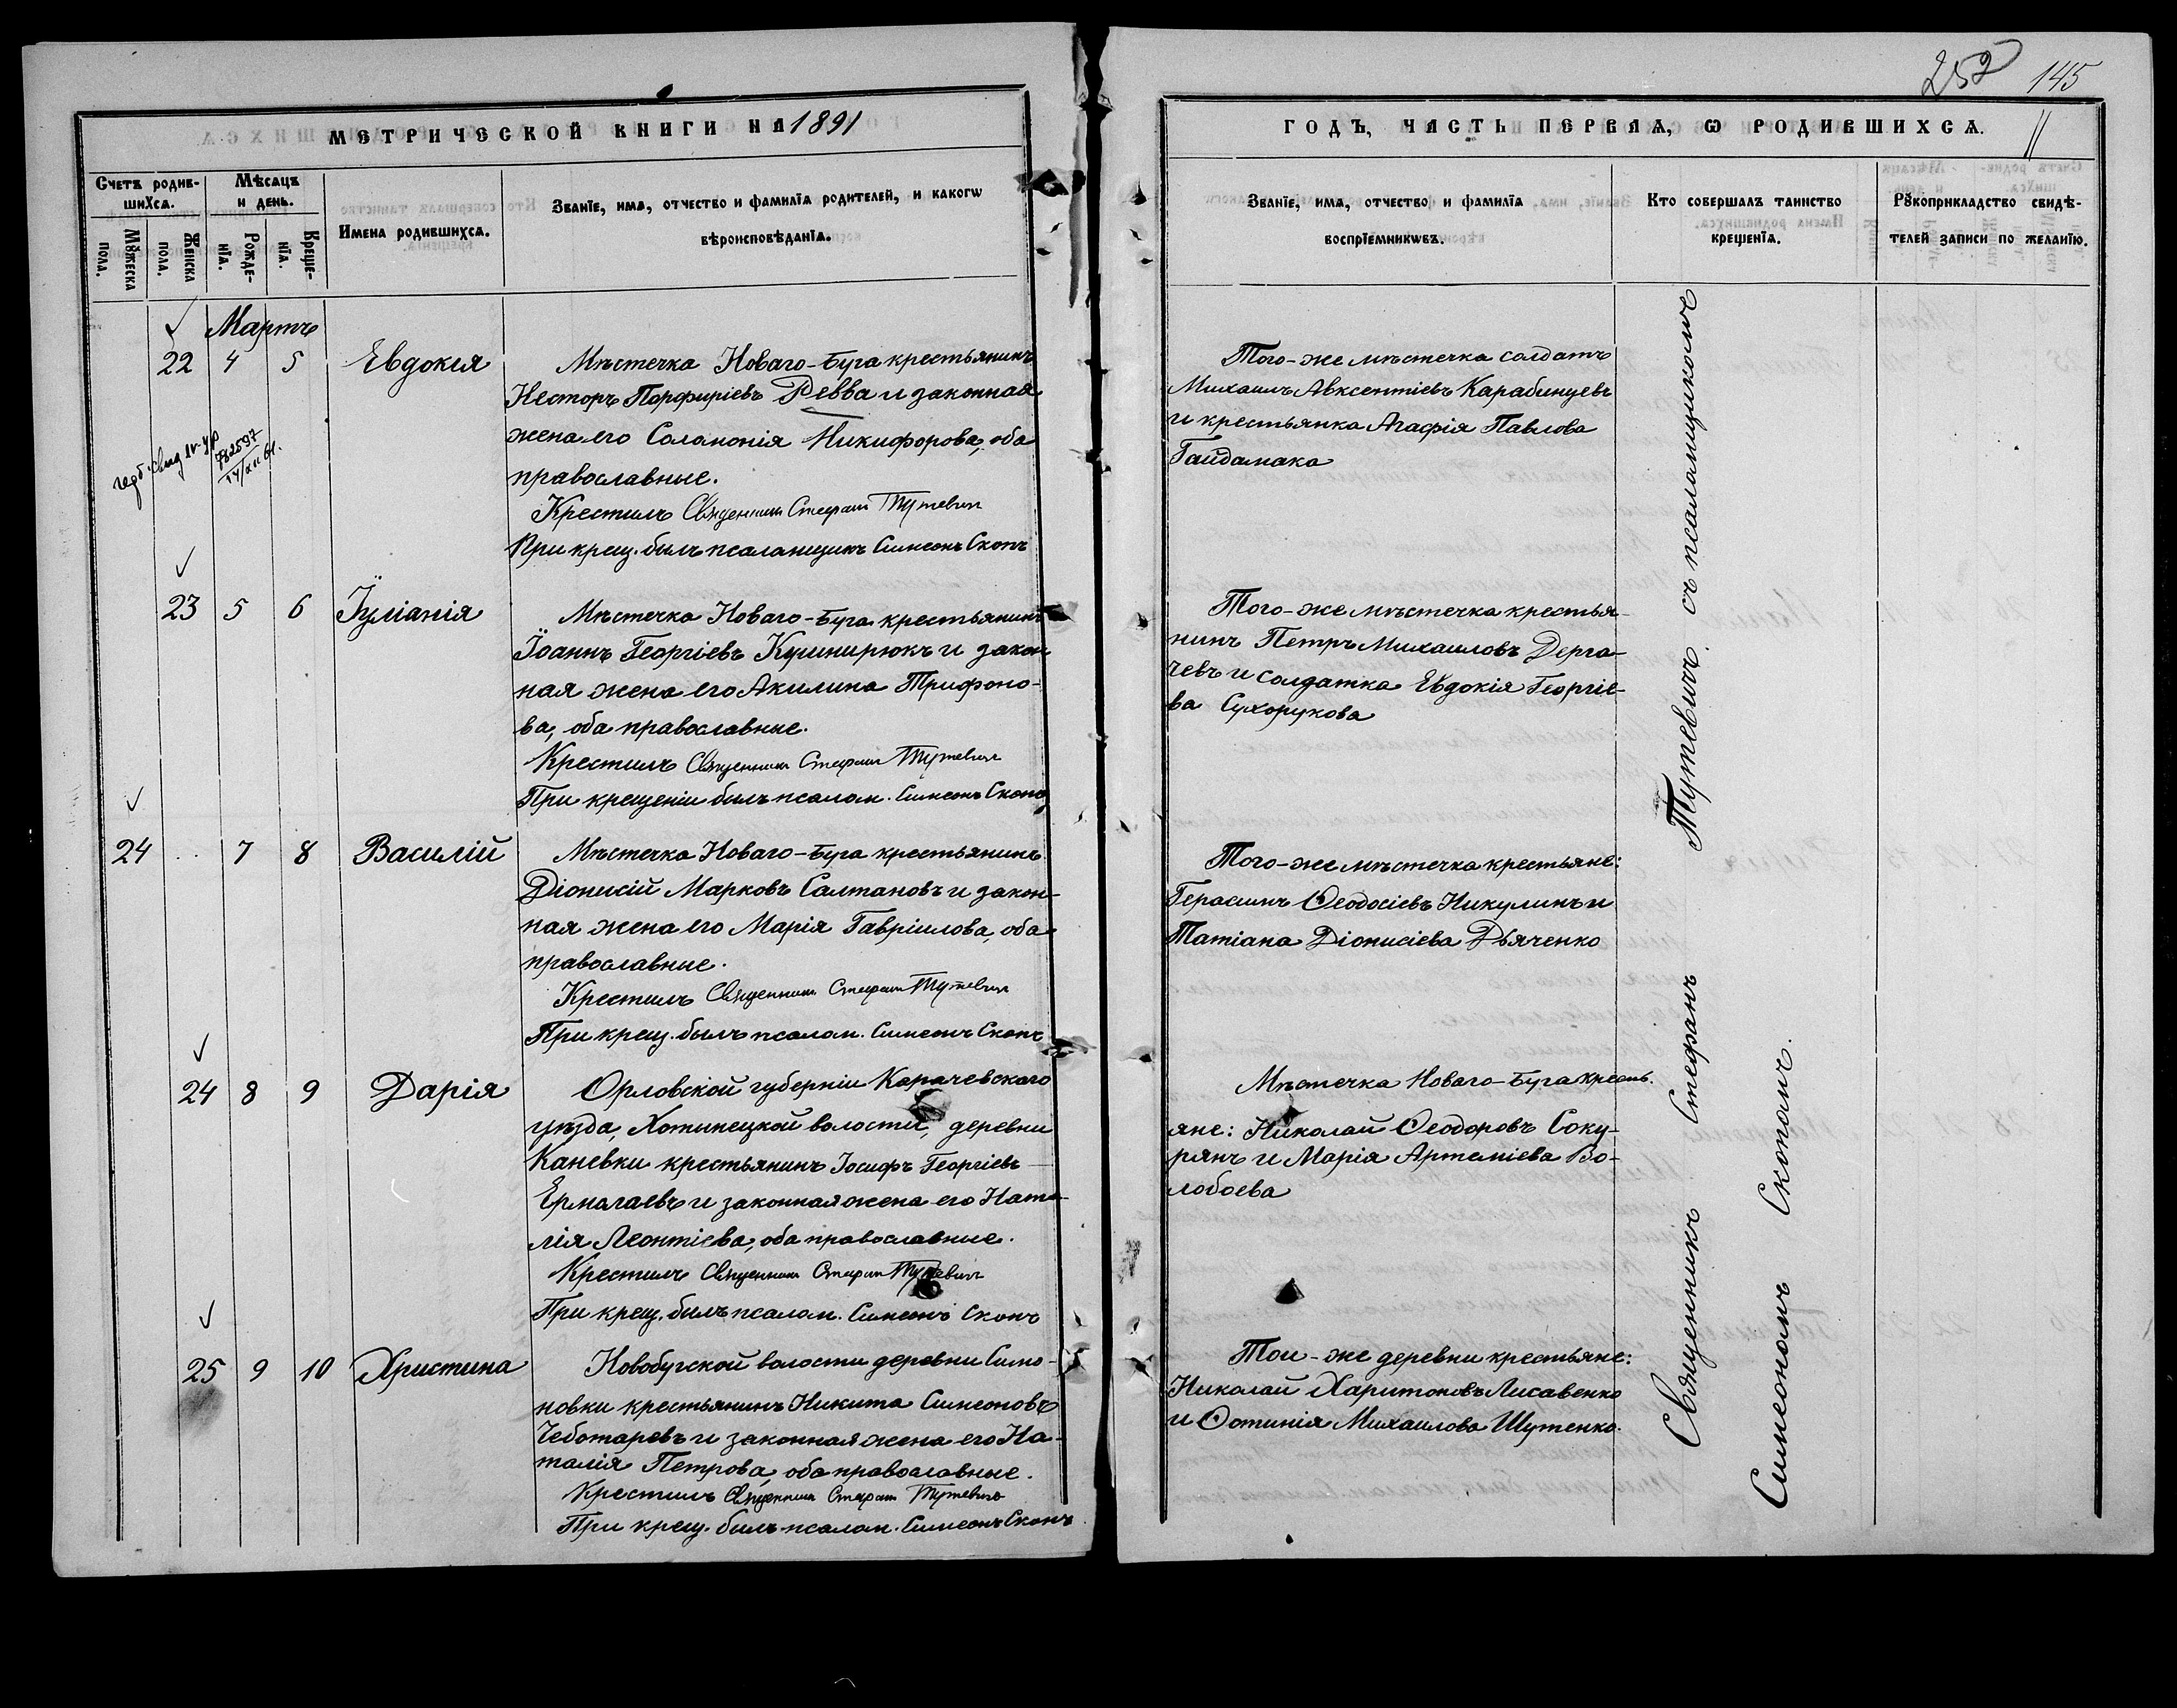 252 145
МЕТРИЧЕСКОЙ КНИГИ НА 1891
ГОДЪ, ЧАСТЬ ПЕРВАЯ, Ѡ РОДИВШИХСѦ.
11
Счетъ родив-
шихсѧ.
Мѣсѧцъ
и день.
Мꙋжеска
пола.
Женска
пола.
Рожде-
нїѧ.
Креще-
нїѧ.
Имена родившихсѧ.
Званїе, имѧ, отчество и фамилїѧ родителей, и какогѡ
вѣроисповѣданїѧ.
Званїе, имѧ, отчество и фамилїѧ
воспрїемникѡвъ.
Кто совершалъ таинство
крещенїѧ.
Рꙋкоприкладство свидѣ-
телей записи по желанїю.
Мартъ
22 4 5 Евдокія
Мѣстечка Новаго-Буга крестьянинъ
Несторъ Порфиріевъ Ревва и законная
жена его Соломонія Никифорова, оба
православные.
Крестилъ Священникъ Стефанъ Тутевичъ
При крещ. былъ псаломщикъ Симеонъ Скопъ
Того-же мѣстечка солдатъ
Михаилъ Авксентіевъ Карабинцевъ
и крестьянка Агафія Павлова
Гайдамака
23 5 6 Іуліанія
Мѣстечка Новаго-Буга крестьянинъ
Іоаннъ Георгіевъ Кушнирюкъ и закон-
ная жена его Акилина Трифоно-
ва, оба православные.
Крестилъ Священникъ Стефанъ Тутевичъ
При крещеніи былъ псалом. Симеонъ Скопъ
Того-же мѣстечка крестья-
нинъ Петръ Михаиловъ Дерга-
чевъ и солдатка Евдокія Георгіе-
ва Сухорукова
24 .. 7 8 Василій
Мѣстечка Новаго-Буга крестьянинъ
Діонисій Марковъ Салтановъ и закон-
ная жена его Марія Гавріилова, оба
православные.
Крестилъ Священникъ Стефанъ Тутевичъ
При крещ. былъ псалом. Симеонъ Скопъ
Того-же мѣстечка крестьяне:
Герасимъ Ѳеодосіевъ Никулинъ и
Татіана Діонисіева Дьяченко
24 8 9 Дарія
Орловской губерніи Карачевскаго
уѣзда, Хотынецкой волости, деревни
Каневки крестьянинъ Іосифъ Георгіевъ
Ермалаевъ и законная жена его Ната-
лія Леонтіева, оба православные.
Крестилъ Священникъ Стефанъ Тутевичъ
При крещ. былъ псалом. Симеонъ Скопъ
Мѣстечка Новаго-Буга кресть-
яне: Николай Ѳеодоровъ Соку-
рянъ и Марія Артеміева Во-
лобоева
25 9 10 Христина
Новобугской волости деревни Симо-
новки крестьянинъ Никита Симеоновъ
Чеботаревъ и законная жена его На-
талія Петрова, оба православные.
Крестилъ Священникъ Стефанъ Тутевичъ
При крещ. былъ псалом. Симеонъ Скопъ
Той-же деревни крестьяне:
Николай Харитоновъ Лисавенко
и Фотинія Михаилова Шутенко.
Священникъ Стефанъ Тутевичъ съ псаломщикомъ
Симеономъ Скопомъ.